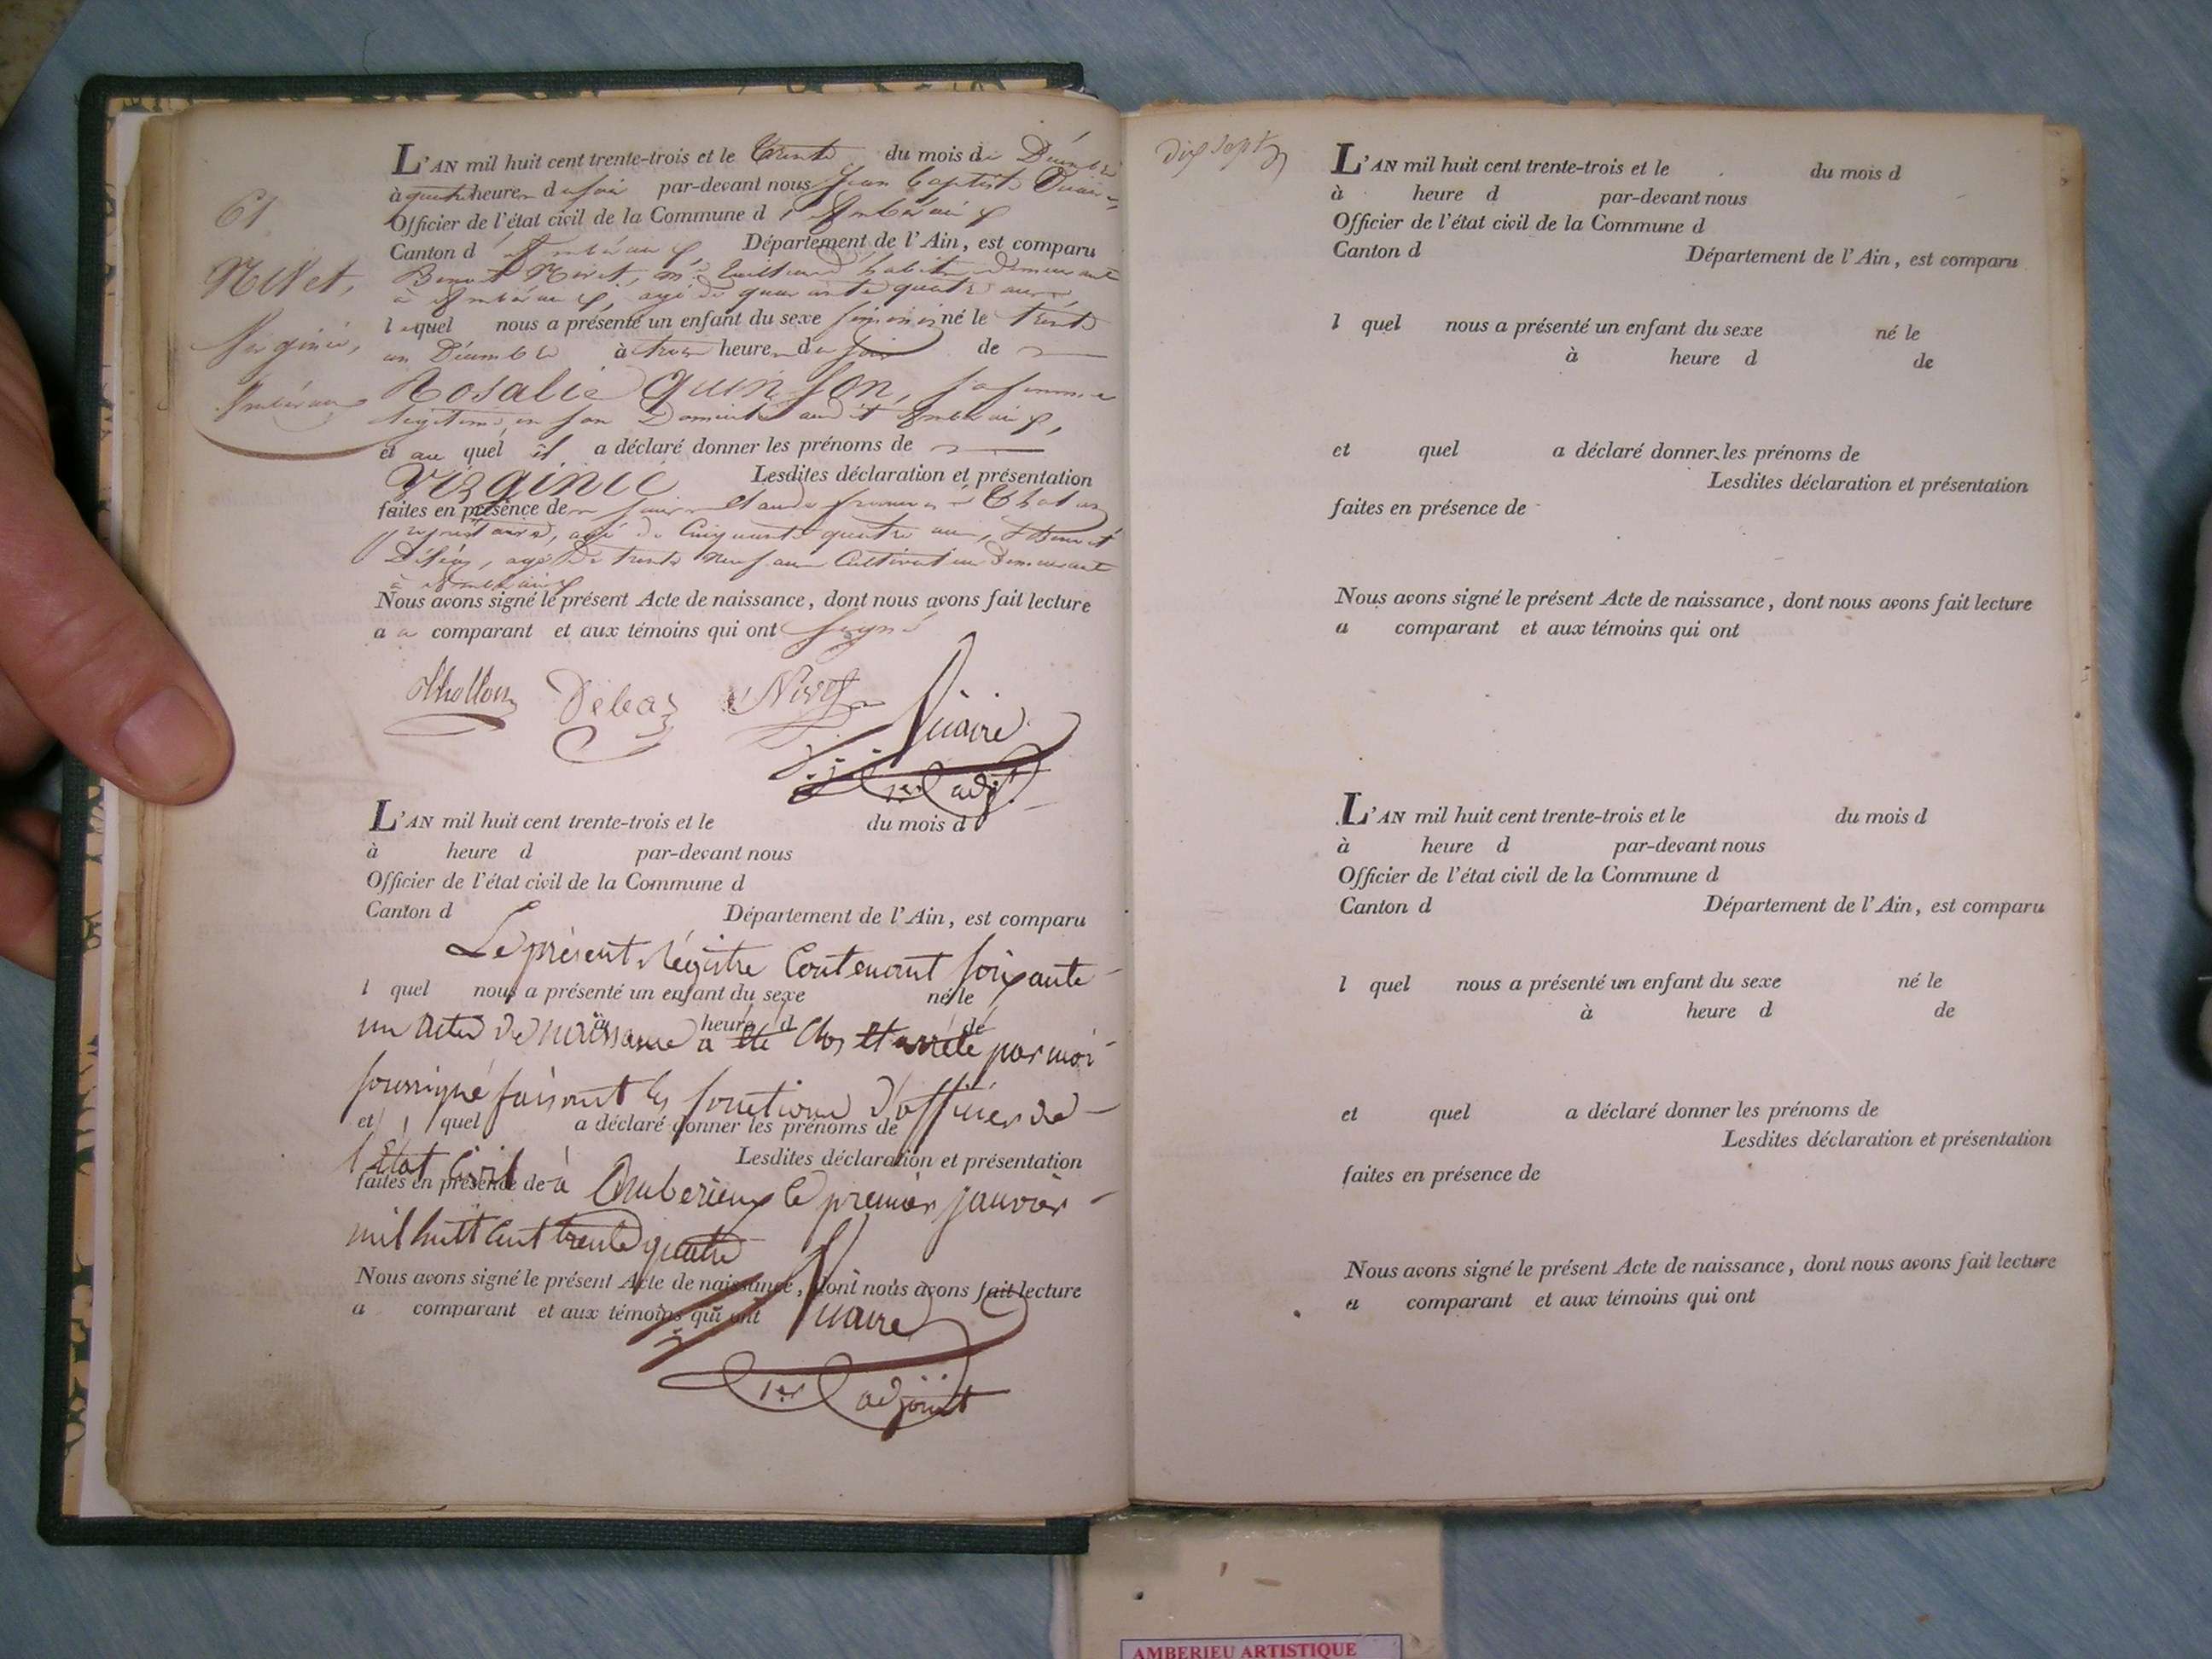 61
Nivet,
Virginie,
Ambérieux
L'AN mil huit cent trente-trois et le Trente du mois de Décembre
à quatre heures du soir par-devant nous Jean Baptiste
Officier de l'état civil de la Commune d'Ambérieux
Canton d'Ambérieux, Département de l'Ain, est comparu
Benoit Nivet, demeurant
à Ambérieux, agé de quarante quatre ans,
lequel nous a présenté un enfant du sexe féminin né le trente
un Décembre à trois heures du soir de
Rosalie Quinson, sa femme
légitime, en son Domicile audit Ambérieux,
et auquel il a déclaré donner les prénoms de
Virginie Lesdites déclaration et présentation
faites en présence de
propriétaire, agé de Cinquante quatre ans, & Benoit
Débéas, agé de trente neuf ans Cultivateur Demeurant
à Ambérieux
Nous avons signé le présent Acte de naissance, dont nous avons fait lecture
au comparant et aux témoins qui ont signé
Débeas Nivet
1er adjt.
L'AN mil huit cent trente-trois et le du mois d
à heure d par-devant nous
Officier de l'état civil de la Commune d
Canton d Département de l'Ain, est comparu
Le présent Régistre Contenant soixante
l quel nous a présenté un enfant du sexe né le
à heure d de
un actes de naissance a été Clos et arrété par moi
soussigné faisant les fonctions d'officier de
et quel a déclaré donner les prénoms de
Lesdites déclaration et présentation
l'Etat Civil à Amberieux le premier janvier
faites en présence de
mil huit cent trente quatre
Nous avons signé le présent Acte de naissance, dont nous avons fait lecture
a comparant et aux témoins qui ont
1er adjoint
dix sept
L'AN mil huit cent trente-trois et le du mois d
à heure d par-devant nous
Officier de l'état civil de la Commune d
Canton d Département de l'Ain, est comparu
l quel nous a présenté un enfant du sexe né le
à heure d de
et quel a déclaré donner les prénoms de
Lesdites déclaration et présentation
faites en présence de
Nous avons signé le présent Acte de naissance, dont nous avons fait lecture
a comparant et aux témoins qui ont
L'AN mil huit cent trente-trois et le du mois d
à heure d par-devant nous
Officier de l'état civil de la Commune d
Canton d Département de l'Ain, est comparu
l quel nous a présenté un enfant du sexe né le
à heure d de
et quel a déclaré donner les prénoms de
Lesdites déclaration et présentation
faites en présence de
Nous avons signé le présent Acte de naissance, dont nous avons fait lecture
a comparant et aux témoins qui ont
AMBERIEU ARTISTIQUE